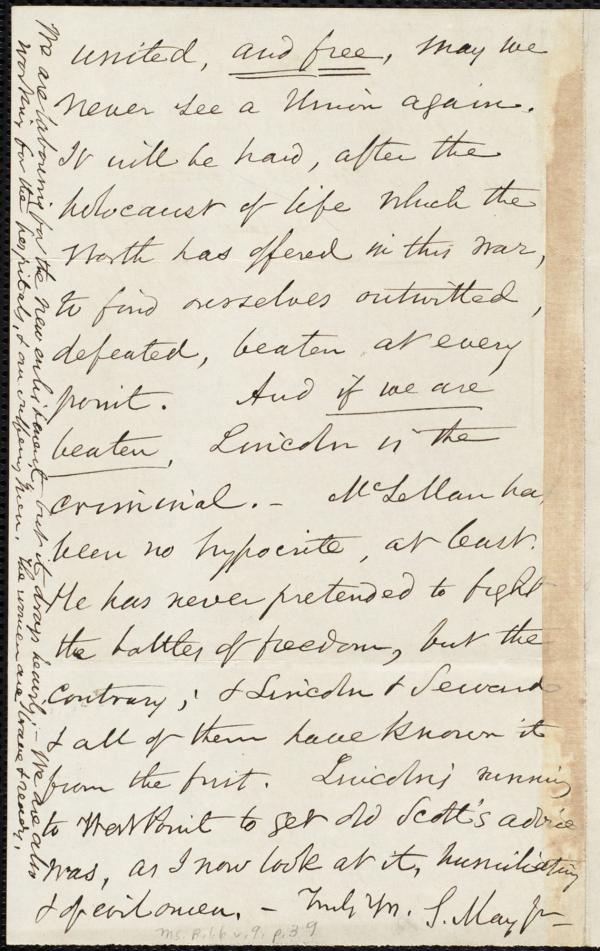 united, and free, may we
never see a Union again.
It will be hard, after the
holocaust of life which the
North has offered in this war,
to find ourselves outwitted,
defeated, beaten at every
point. And if we are
beaten, Lincoln is the
criminal. - McLellan has
been no hypocrite, at least.
He has never pretended to fight
the battles of freedom, but the
contrary; & Lincoln & Seward
& all of them have known it
from the first. Lincoln's running
to West Point to get old Scott's advice
was, as I now look at it, humiliating
& of evil omen. - Truly Yrs. S. May Jr.
We are labouring for the new enlistment, but it drags heavily. - We are also
working for the hospitals, & our suffering men. The women are brave & ready.
Ms. B.1.6 v.9, p.39